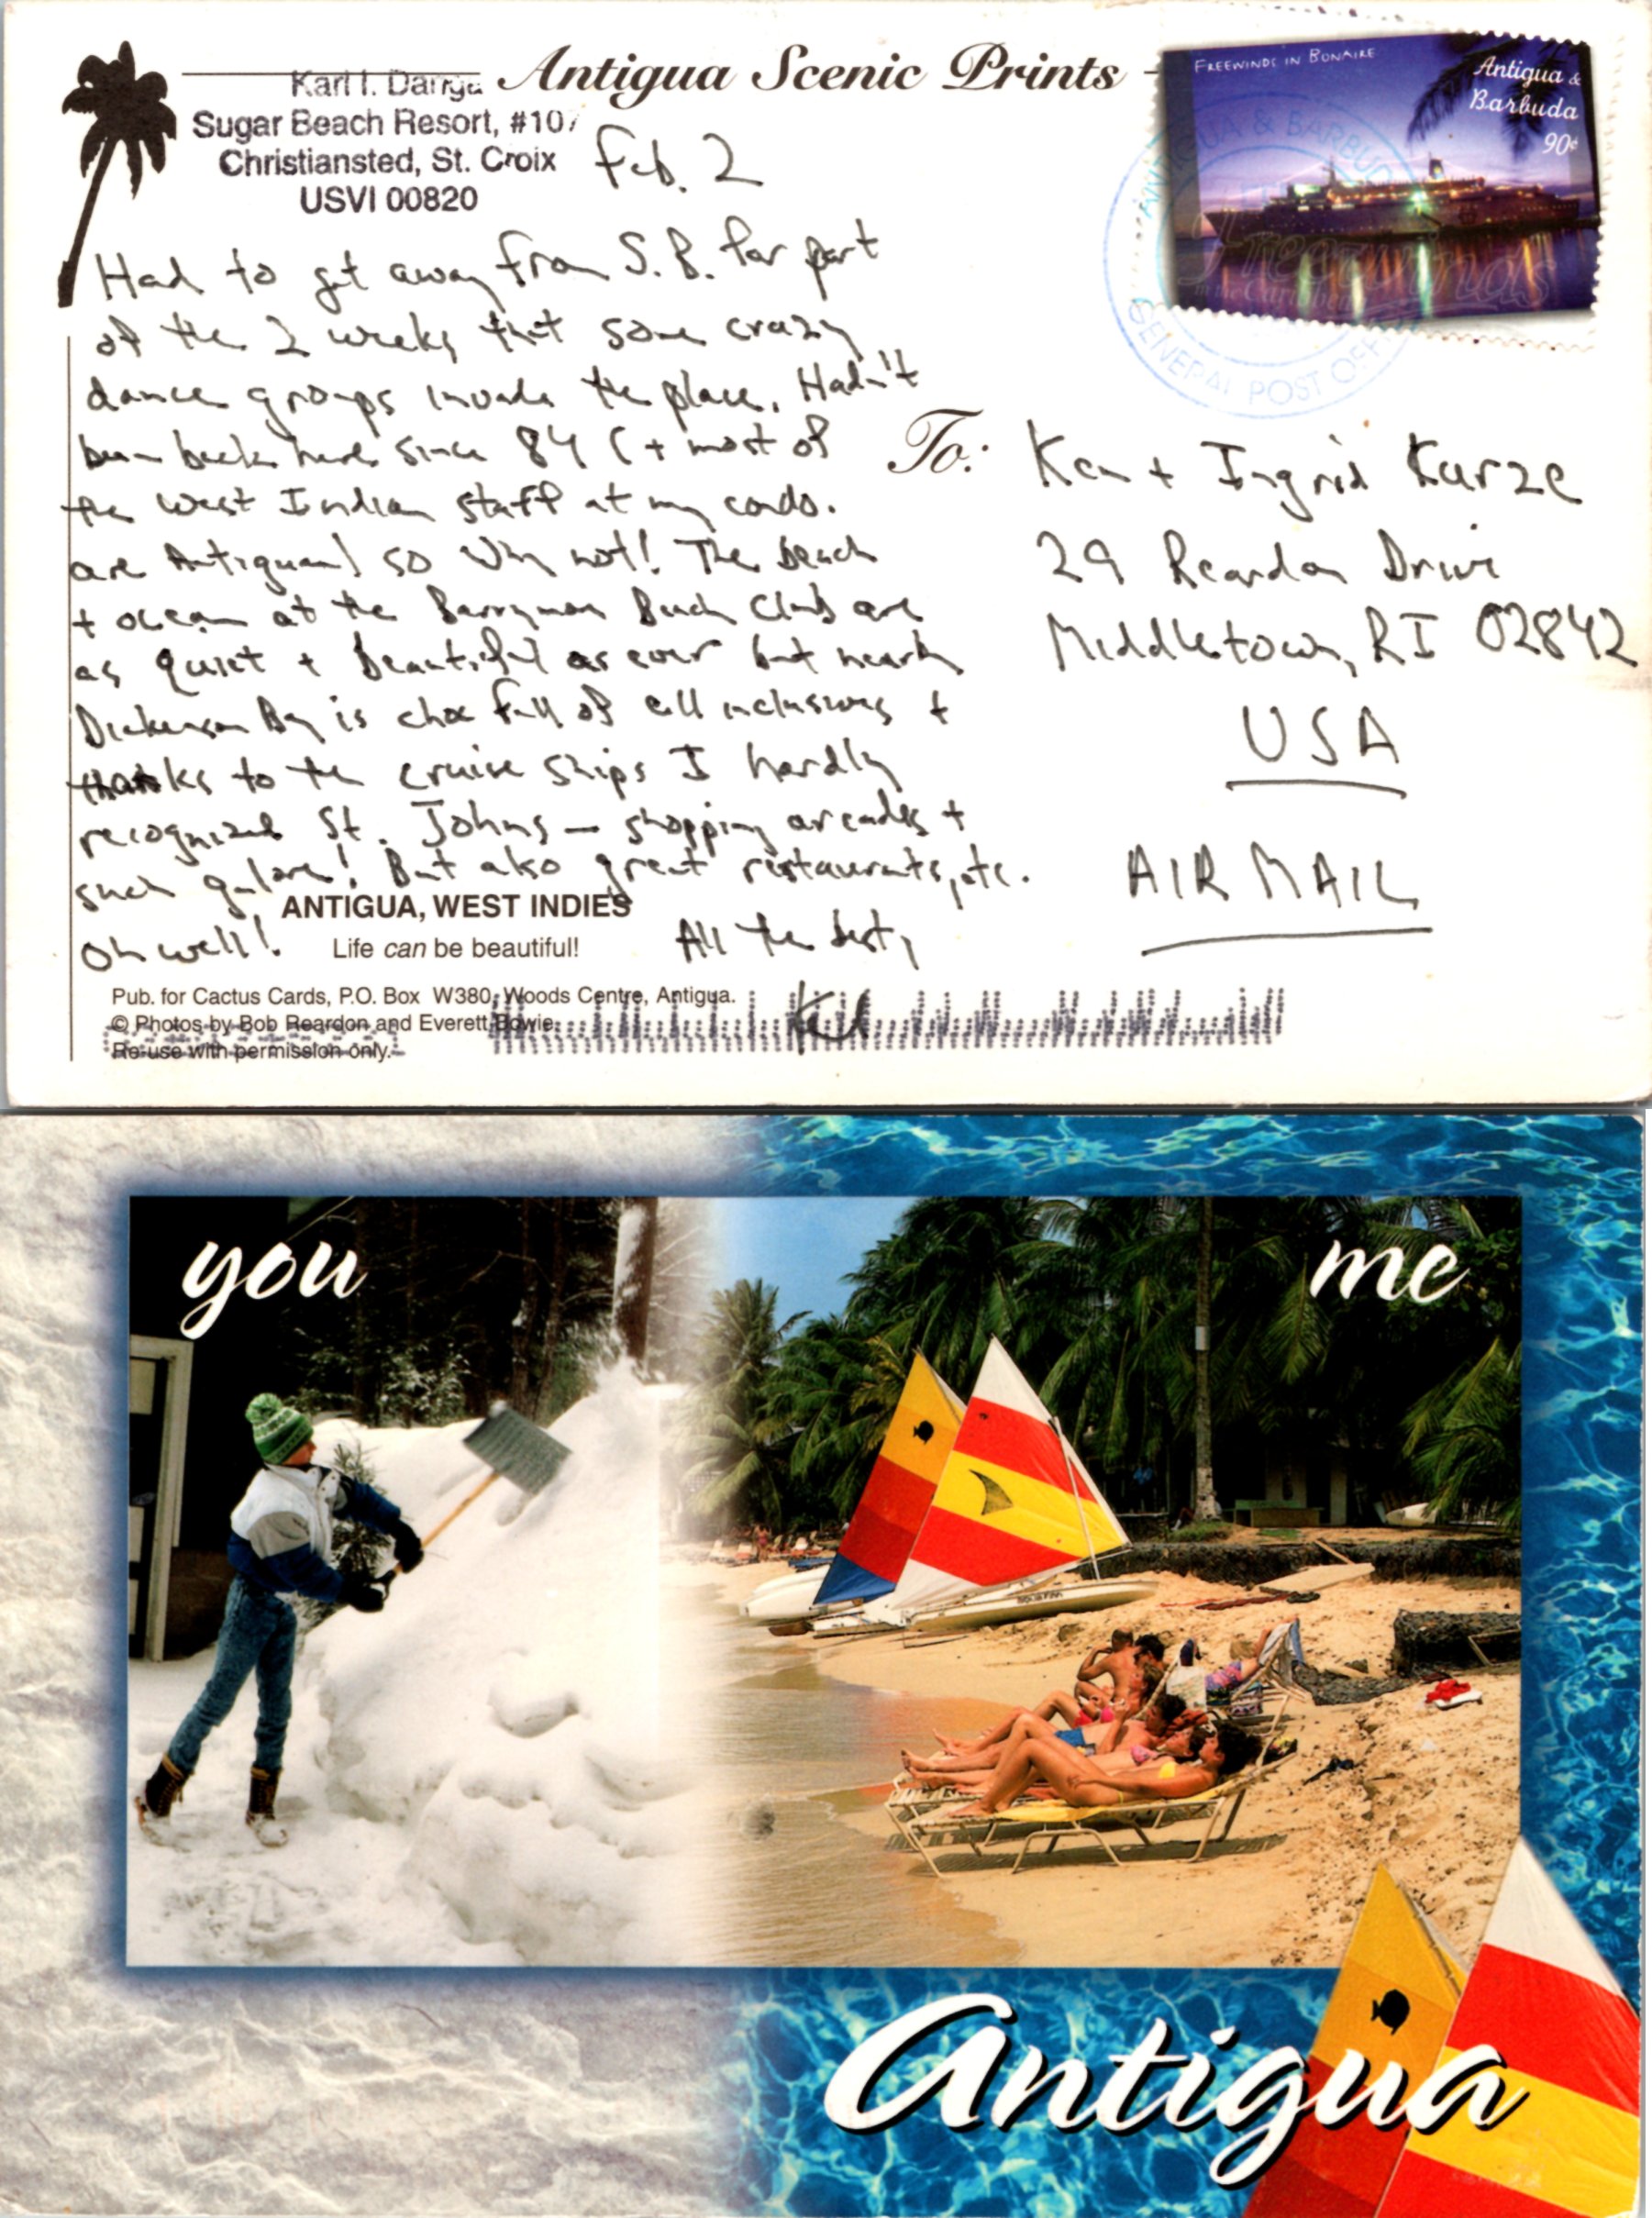 Antigua Scenic Prints
Karl I.
Sugar Beach Resort, #107
Christiansted, St. Croix
USVI 00820
Feb. 2
FREEWINDS IN BONAIRE
Antigua &
Barbuda
90¢
Freewinds
in the Caribbean
ANTIGUA & BARBUDA
GENERAL POST OFFICE
Had to get away from S. B. for part
of the 2 weeks that some crazy
dance groups invade the place. Hadn't
been back here since 84 (+ most of
the West Indian staff at my condo.
are Antiguan) so why not! The beach
+ ocean at the Barrymore Beach Club are
as quiet + beautiful as ever but nearby
Dickenson Bay is chox full of all inclusives +
thanks to the cruise ships I hardly
recognized St. Johns — shopping arcades +
such galore! But also great restaurants, etc.
Oh well!
All the best,
To:
Ken + Ingrid Kurze
29 Reardon Drive
Middletown, RI 02842
USA
AIR MAIL
ANTIGUA, WEST INDIES
Life can be beautiful!
Pub. for Cactus Cards, P.O. Box W380, Woods Centre, Antigua.
© Photos by Bob Reardon and Everett Bowie.
Re-use with permission only.
you
me
Antigua